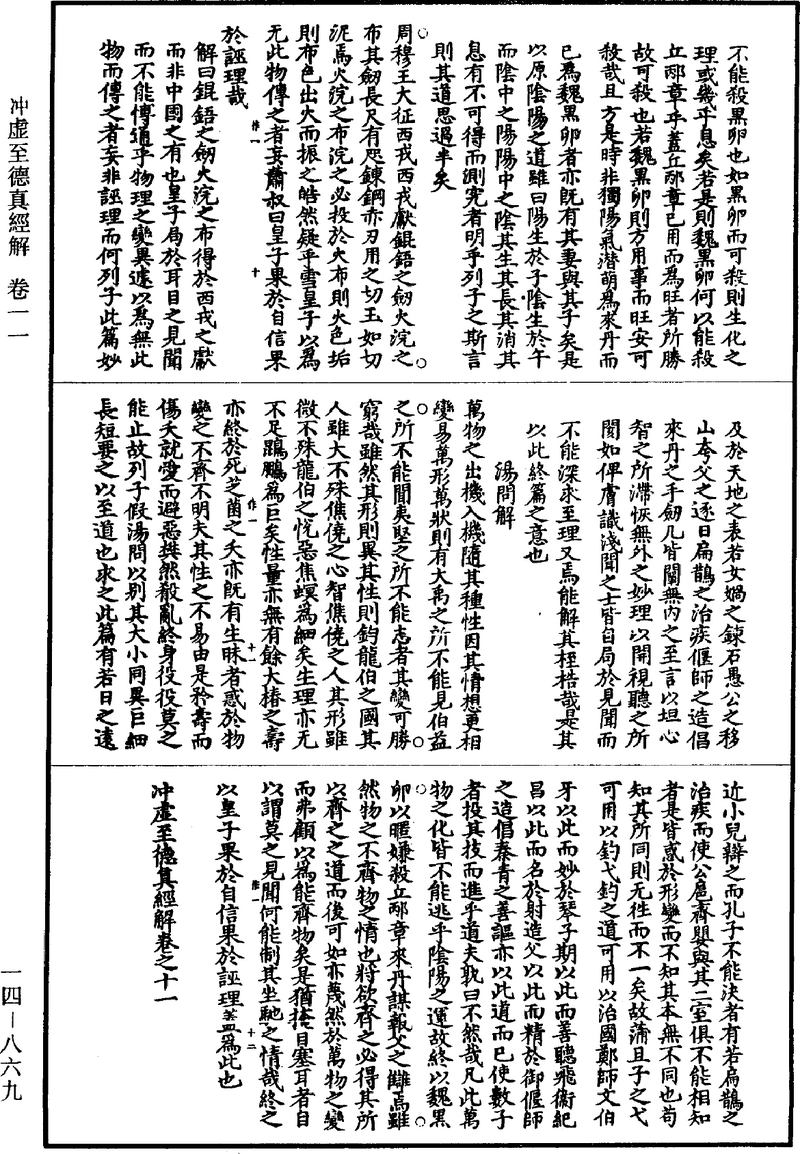 不能殺黑卵也如黑卵而可殺則生化之
理或幾乎息矣若是則魏黑卵何以能殺
丘邴章乎蓋丘邴章已用而爲旺者所勝
故可殺也若魏黑卵則方用事而旺安可
殺哉且方是時非獨陽氣潛萌爲來丹而
已爲魏黑卵者亦旣有其妻與其子矣是
以原陰陽之道雖曰陽生於子陰生於午
而陰中之陽陽中之陰其生其長其消其
息有不可得而測究者明乎列子之斯言
則其道思過半矣
周穆王大征西戎西戎獻錕鋙之劔火浣之
布其劔長尺有咫鍊鋼赤刃用之切玉如切
泥焉火浣之布浣之必投於火布則火色垢
則布色出火而振之皓然疑乎雪皇子以爲
无此物傳之者妄蕭叔曰皇子果於自信果
於誣理哉
解曰錕鋙之劔火浣之布得於西戎之獻
而非中國之有也皇子局於耳目之見聞
而不能傳通乎物理之變異遽以爲無此
物而傳之者妄非誣理而何列子此篇妙
及於天地之表若女媧之鍊石愚公之移
山夸父之逐日扁鵲之治疾偃師之造倡
來丹之手劔几皆闡無內之至言以坦心
智之所滯恢無外之妙理以開視聽之所
閡如俾膚識淺聞之士皆自局於見聞而
不能深求至理又焉能解其桎梏哉是其
以此終篇之意也
湯問解
萬物之出機入機隨其種性因其情想更相
變易萬形萬狀則有大禹之所不能見伯益
之所不能聞夷堅之所不能志者其變可勝
窮哉雖然其形則異其性則鈞龍伯之國其
人雖大不殊僬僥之心智僬僥之人其形雖
微不殊龍伯之忱惡焦螟爲細矣生理亦无
不足鵾鵬爲巨矣性量亦無有餘大椿之壽
亦終於死芝菌之夭亦旣有生昧者惑於物
變之不齊不明夫其性之不易由是矜壽而
傷夭就愛而避惡撄然殽亂終身役役莫之
能止故列子假湯問以别其大小同異巨細
長短要之以至道也求之此篇有若日之遠
近小兒辯之而孔子不能決者有若扁鵲之
治疾而使公扈齊嬰與其二室俱不能相知
者是皆惑於形變而不知其本無不同也苟
知其所同則无徃而不一矣故蒲且子之弋
可用以釣弋釣之道可用以治國鄭師文伯
牙以此而妙於琴子期以此而善聽飛衞紀
昌以此而名於射造父以此而精於御偃師
之造倡秦青之善謳亦以此道而已使數子
者投其技而進乎道夫孰曰不然哉凡此萬
物之化皆不能逃乎陰陽之運故終以魏黑
卵以暱嫌殺丘邴章來丹謀報父之讎焉雖
然物之不齊物之情也將欲齊之必得其所
以齊之之道而後可如亦蔑然於萬物之變
而弗顧以為能齊物矣是猶揜目塞耳者自
以謂莫之見聞何能制其坐馳之情哉終之
以皇子果於自信果於誣理蓋爲此也
冲虛至德真經解卷之十一
冲虛至德真經解 卷一一
一四—八六九